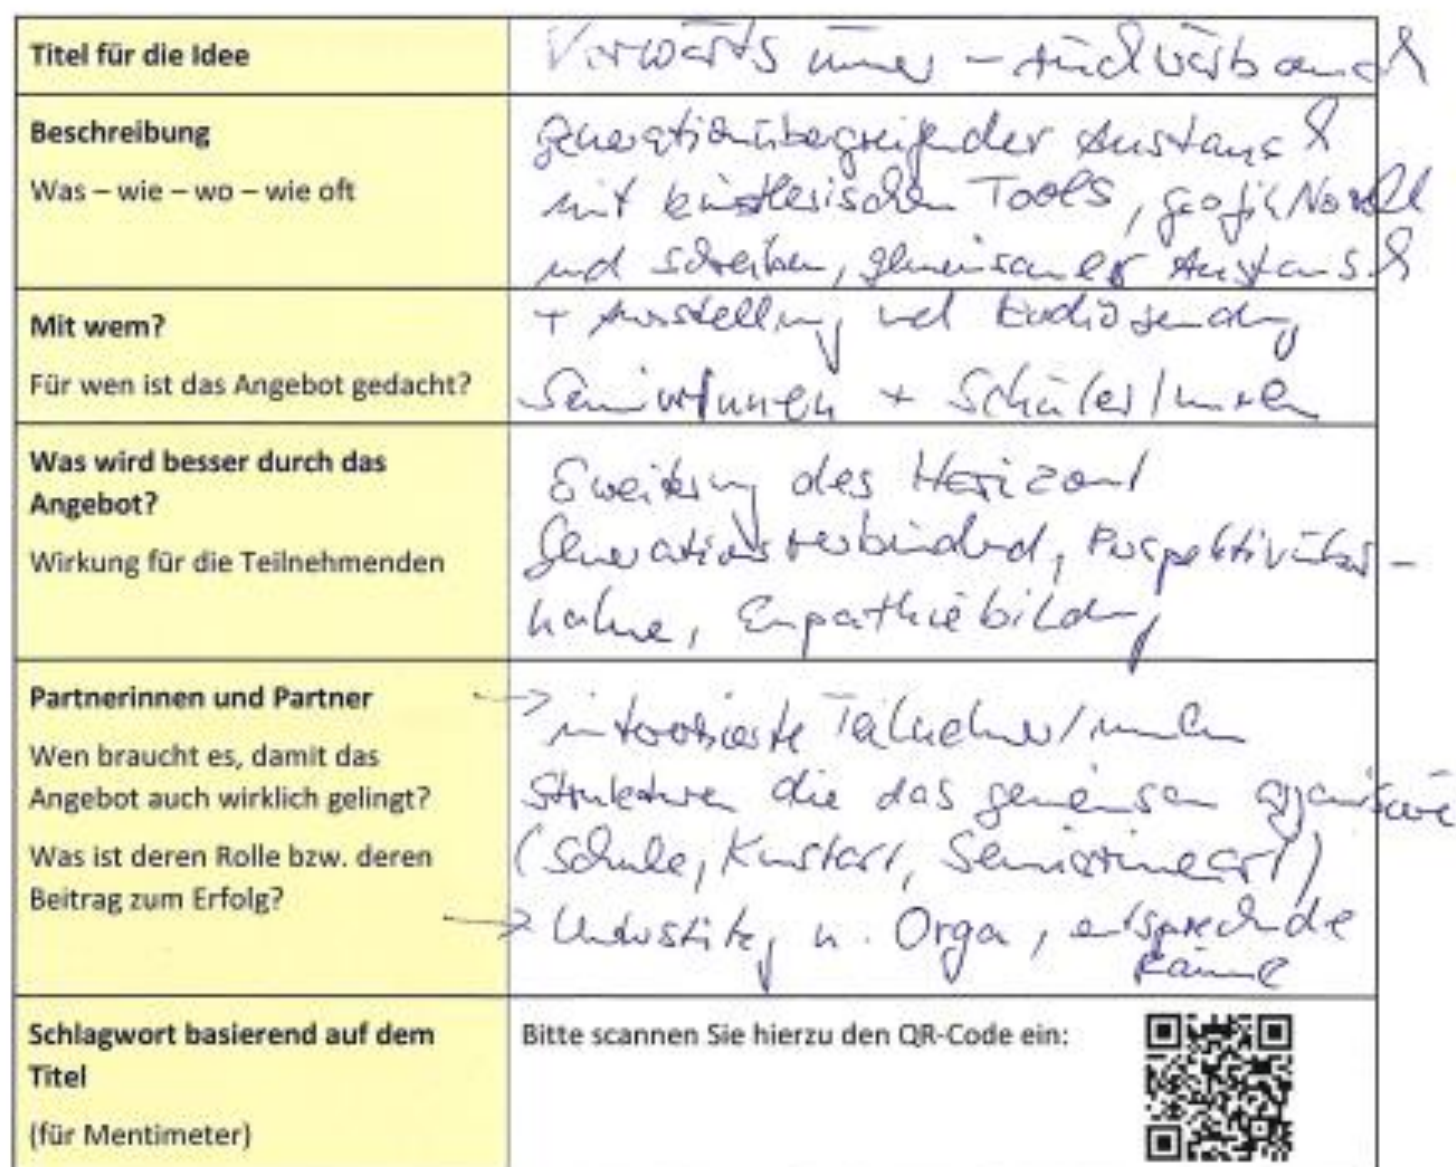 Titel für die Idee
Vorwärts immer -
Beschreibung
Was – wie – wo – wie oft
generationübergreifender Austausch
mit künstlerischen Tools, grafik Novell
und schreiben, gemeinsamer Austausch
Mit wem?
Für wen ist das Angebot gedacht?
+ Ausstellung und Audiosendung
Senior/innen + Schüler/innen
Was wird besser durch das
Angebot?
Wirkung für die Teilnehmenden
Erweiterung des Horizont
Generationsverbindend, Perspektivüber-
nahme, Empathiebildung
Partnerinnen und Partner
Wen braucht es, damit das
Angebot auch wirklich gelingt?
Was ist deren Rolle bzw. deren
Beitrag zum Erfolg?
→ interessierte Teilnehmer/innen
Strukturen die das gemeinsam organisieren
(Schule, Kunstart,
→ Unterstützg u. Orga, entsprechende
Räume
Schlagwort basierend auf dem
Titel
(für Mentimeter)
Bitte scannen Sie hierzu den QR-Code ein: